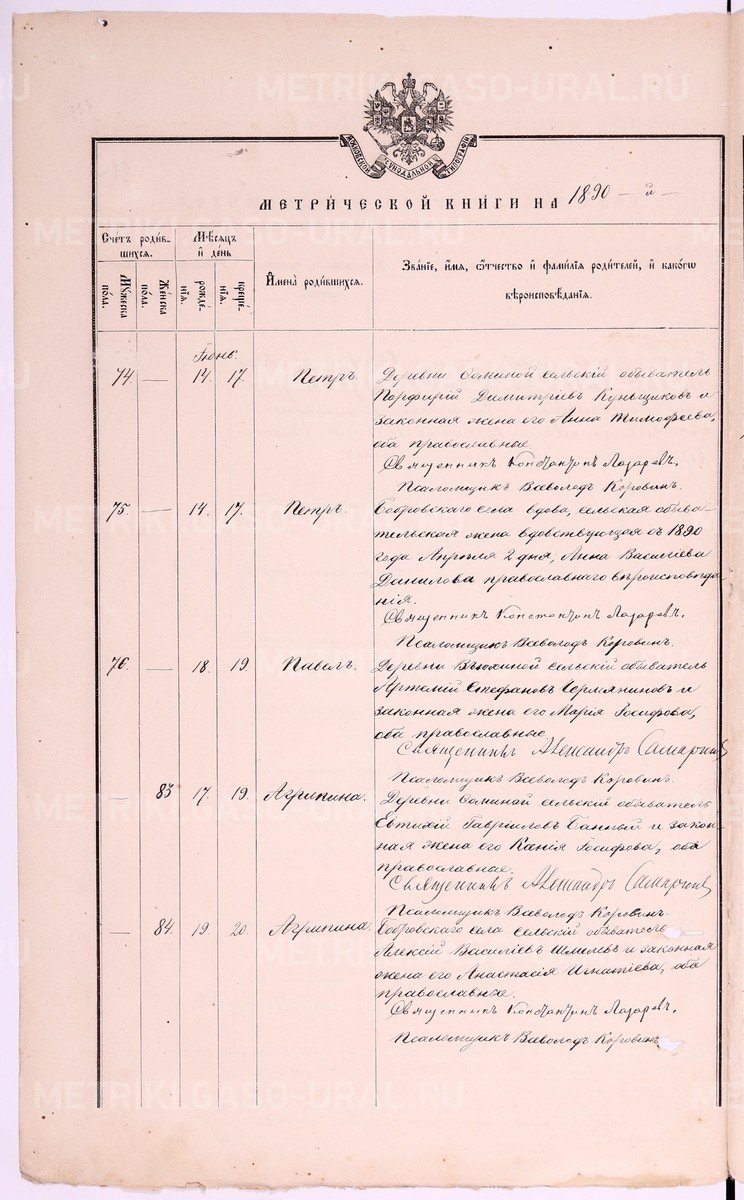 METRIKI.GASO-URAL.RU
МОСКОВСКОЙ СѴНОДАЛЬНОЙ ТИПОГРАФІИ
МЕТРИ́ЧЕСКОЙ КНИ́ГИ НА 1890 — й —
Сче́тъ роди́в-
шихся.
Мꙋ́жеска
по́ла.
Же́нска
по́ла.
Мѣ́сяцъ
и҆ де́нь
рожде́-
нїѧ.
креще́-
нїѧ.
И҆мена̀ роди́вшихся.
Зва́нїе, и҆́мѧ, ѻ҆́тчество и҆ фамилїѧ роди́телей, и҆ какѡ́гѡ
вѣроисповѣ́данїѧ.
Іюнь.
74. — 14. 17. Петръ. Деревни Соминой сельскій обыватель
Порфирій Димитріевъ Куньщиковъ и
законная жена его Анна Тимофеева,
оба православные
Священникъ Константинъ Лазаревъ.
Псаломщикъ Всеволодъ Коровинъ.
75. — 14. 17. Петръ. Бобровскаго села вдова, сельская обыва-
тельская жена вдовствующая съ 1890
года Апрѣля 2 дня, Анна Василіева
Данилова православнаго вѣроисповѣда-
нія.
Священникъ Константинъ Лазаревъ.
Псаломщикъ Всеволодъ Коровинъ.
76. — 18. 19. Павелъ. Деревни Вьюхиной сельскій обыватель
Артемій Стефановъ Чермяниновъ и
законная жена его Марія Іосифова,
оба православные
Священникъ Александръ Самарцевъ
Псаломщикъ Всеволодъ Коровинъ.
— 83 17. 19. Агрипина. Деревни Соминой сельскій обыватель
Евтихій Гавріиловъ Банный и закон-
ная жена его Ксенія Іосифова, оба
православные.
Священникъ Александръ Самарцевъ
Псаломщикъ Всеволодъ Коровинъ.
— 84. 19. 20. Агрипина. Бобровскаго села сельскій обыватель
Алексій Василіевъ Шмелевъ и законная
жена его Анастасія Игнатіева, оба
православные.
Священникъ Константинъ Лазаревъ.
Псаломщикъ Всеволодъ Коровинъ